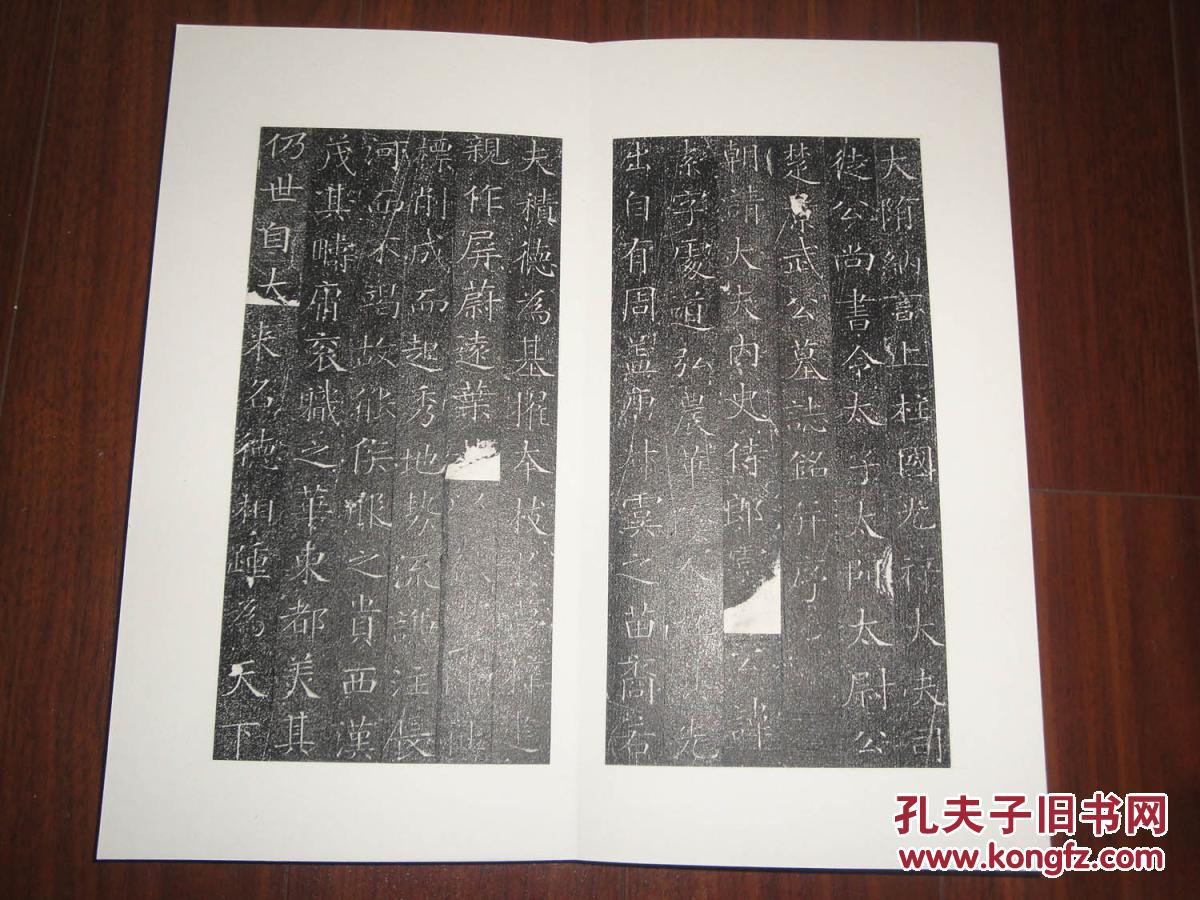 大隋納言上柱國光祿大夫司
徒公尚書令太子太師太尉公
楚景武公墓誌銘并序
朝請大夫內史侍郎虞
公諱
素字處道弘農華陰人
先
出自有周盖唐叔虞之苗裔若
夫積德為基擢本枝於
親作屏蔚遠葉
標削成而起秀地勢派
注長
河而不竭故能侯服之貴西漢
茂其疇庸衮職之華東都美其
仍世自大
来名德相踵為天下
孔夫子旧书网
www.kongfz.com